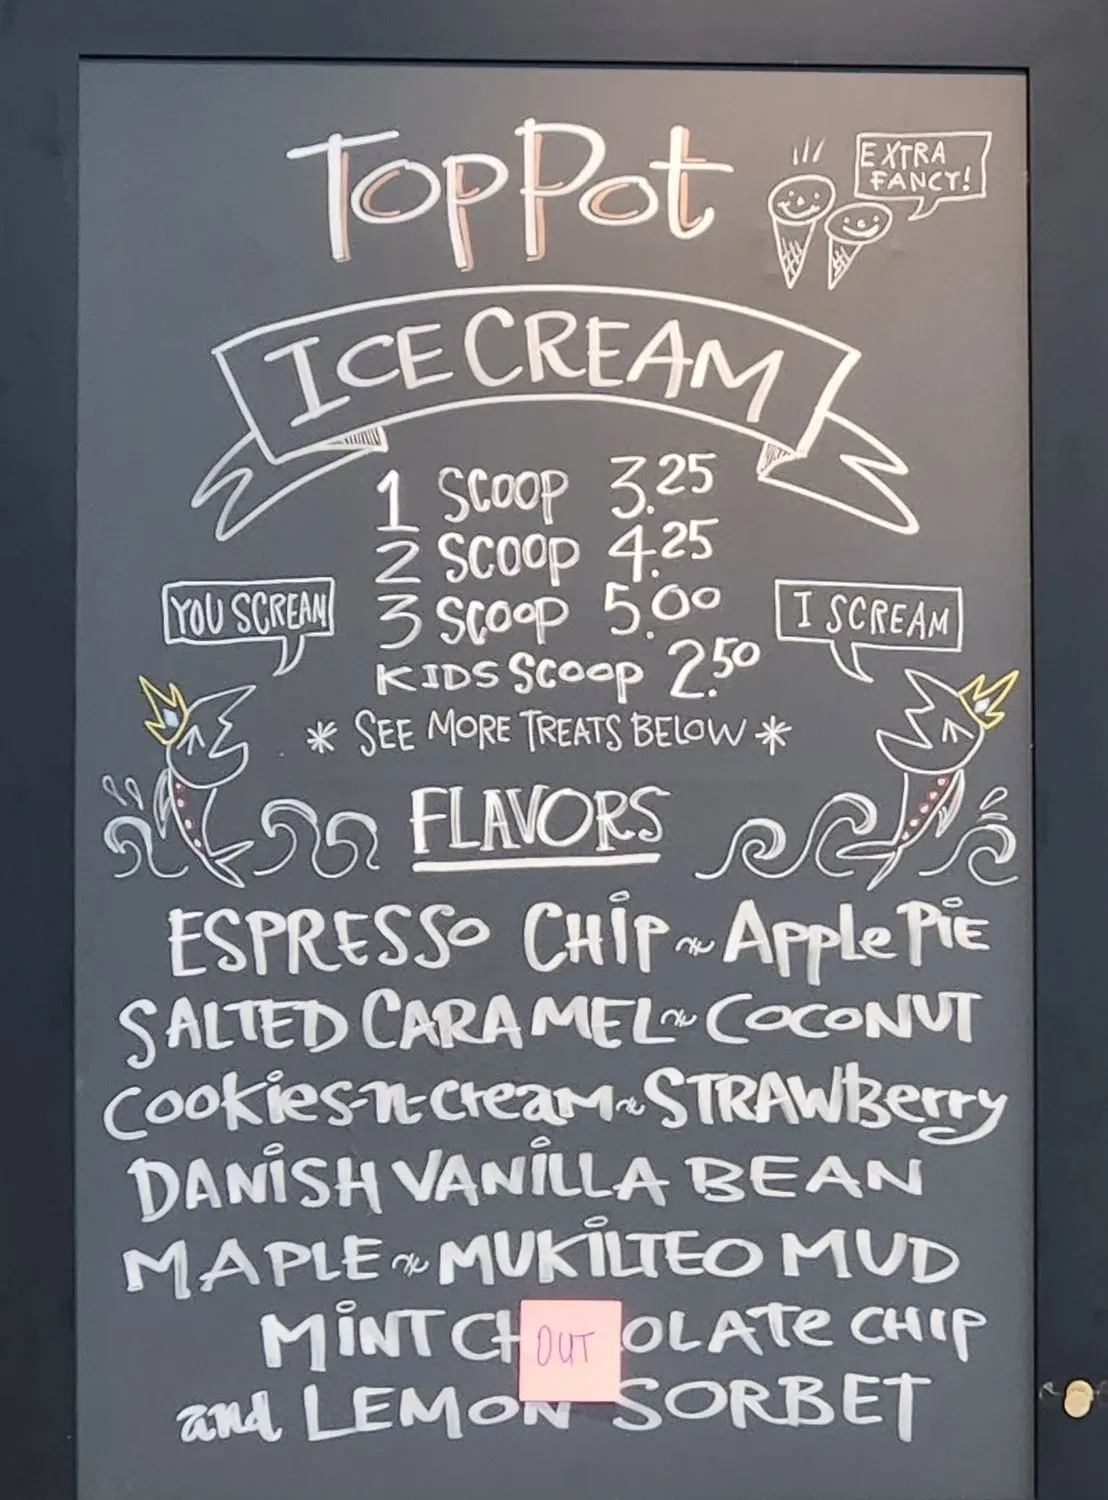 TopPot
EXTRA
FANCY!
ICE CREAM
1 SCOOP 3.25
2 SCOOP 4.25
3 SCOOP 5.00
KIDS SCOOP 2.50
YOU SCREAM
I SCREAM
* SEE MORE TREATS BELOW *
FLAVORS
ESPRESSO CHIP ~ Apple PiE
SALTED CARAMEL ~ COCONUT
Cookies-n-cream ~ STRAWBerry
DANiSH VANiLLA BEAN
MAPLE ~ MUKiLTEO MUD
MiNT CH OLATe CHIP
OUT
and LEMON SORBET